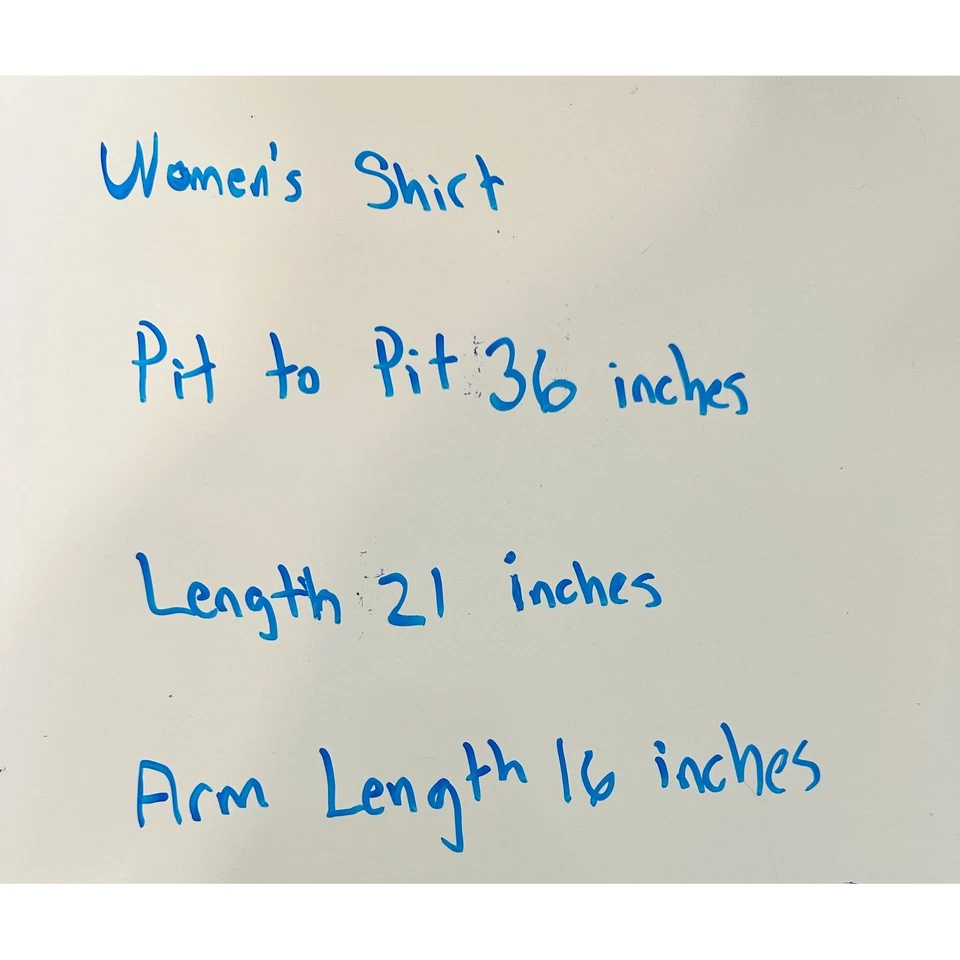 Women's Shirt
Pit to Pit 36 inches
Length 21 inches
Arm Length 16 inches